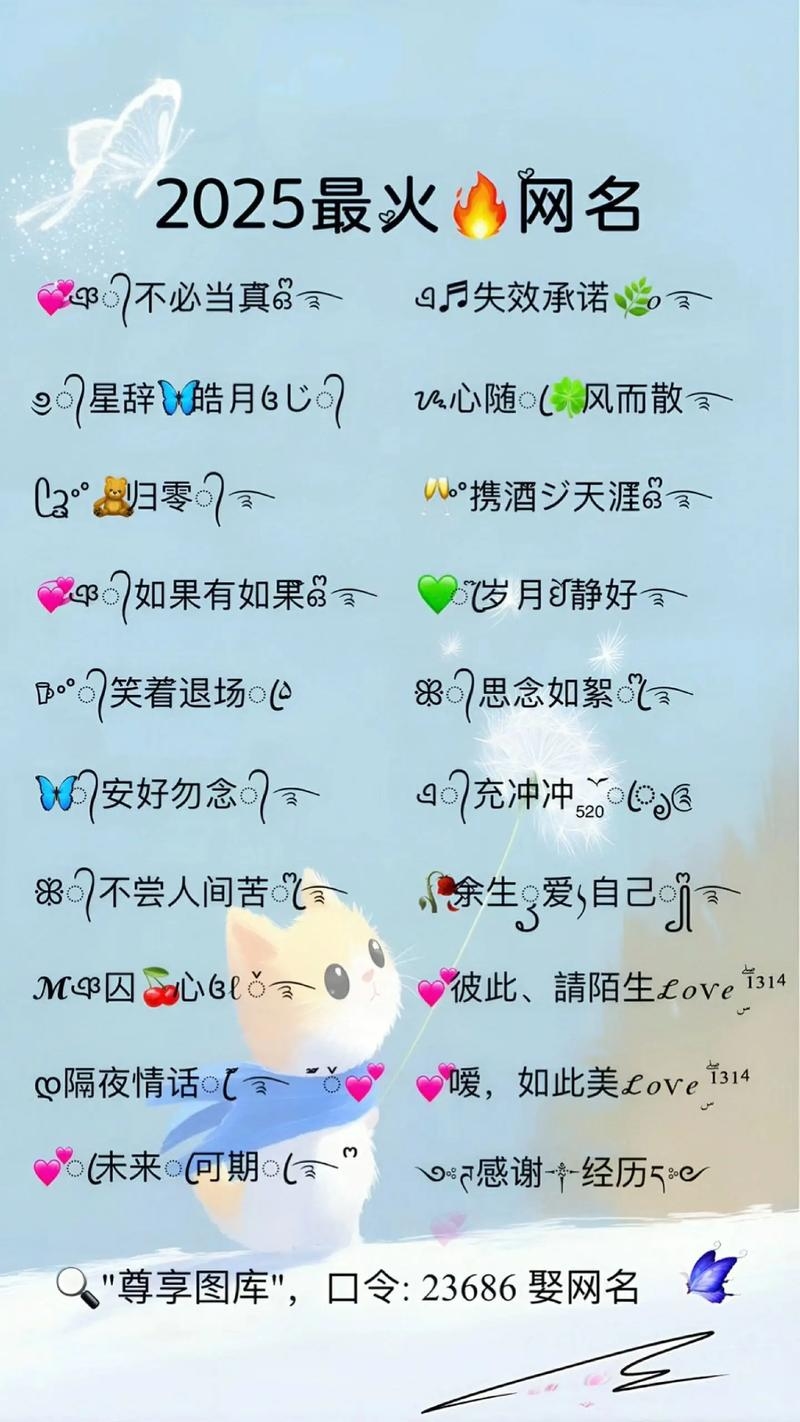 2025最火🔥网名
💞ঞ᭄不必当真ঔ࿐ ໑♬失效承诺🌿o࿐
୭᭄星辞🦋皓月ଓじ᭄ ₰心随ꦿ🍀风而散࿐
ʚ°°🧸归零᭄࿐ 🥂°°携酒ジ天涯ঔ࿐
💞ঞ᭄如果有如果ঔ࿐ 💚ꦿ岁月ༀ静好࿐
𖠚°°᭄笑着退场ꦿ໖ ꕥ᭄思念如絮ꦿ࿐
🦋᭄安好勿念᭄࿐ ໑᭄充冲冲₅₂₀ꦿ
ꕥ᭄不尝人间苦ꦿ࿐ 🥀余生爱自己࿐
ℳঞ囚🍒心ଓℓ࿐ 💕彼此、請陌生𝓛𝓸𝓿𝓮¹³¹⁴
ღ隔夜情话ꦿ࿐💕 💕嗳，如此美𝓛𝓸𝓿𝓮¹³¹⁴
💕ꦿ未来ꦿ可期ꦿ࿐ ࿐感谢⸸经历࿐
🔍"尊享图库"，口令: 23686 娶网名